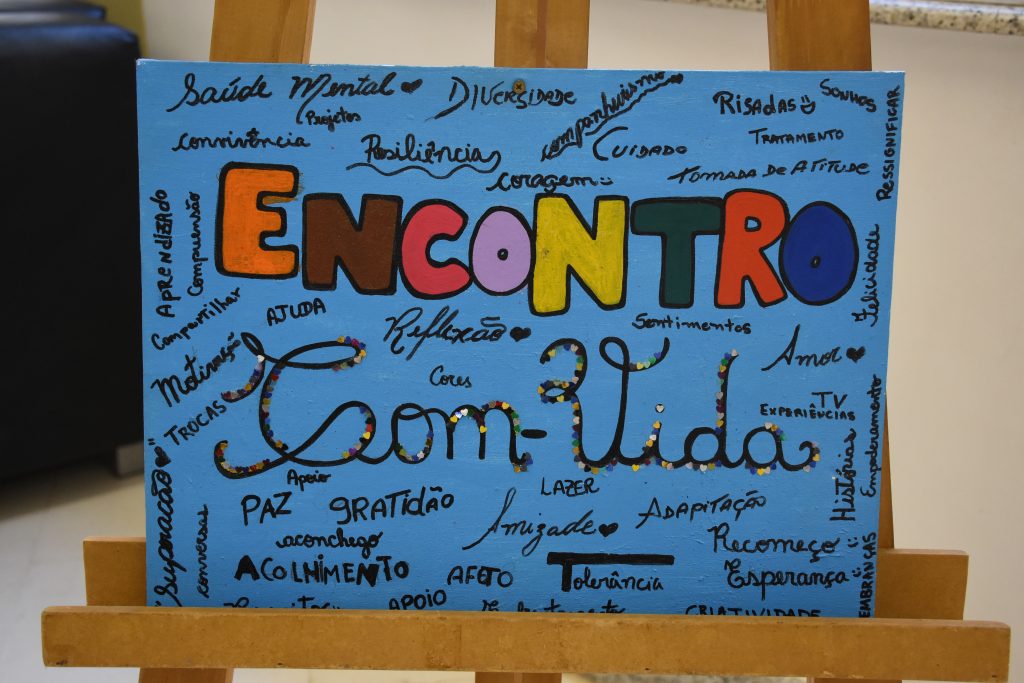 Saúde Mental
DIVERSIDADE
companheirismo
RISADAS
SONHOS
RESSIGNIFICAR
Projetos
convivência
Resiliência
CUIDADO
TRATAMENTO
coragem
TOMADA DE ATITUDE
APRENDIZADO
Compreensão
ENCONTRO
Felicidade
Compartilhar
AJUDA
Reflexão
Sentimentos
Motivação
Amor
Cores
Com-Vida
TROCAS
TV
EXPERIÊNCIAS
Empoderamento
Histórias
Superação
conversas
Apoio
LAZER
PAZ
GRATIDÃO
Amizade
ADAPITAÇÃO
aconchego
Recomeço
ACOLHIMENTO
AFETO
Tolerância
Esperança
EMBRANÇAS
APOIO
CRIATIVIDADE